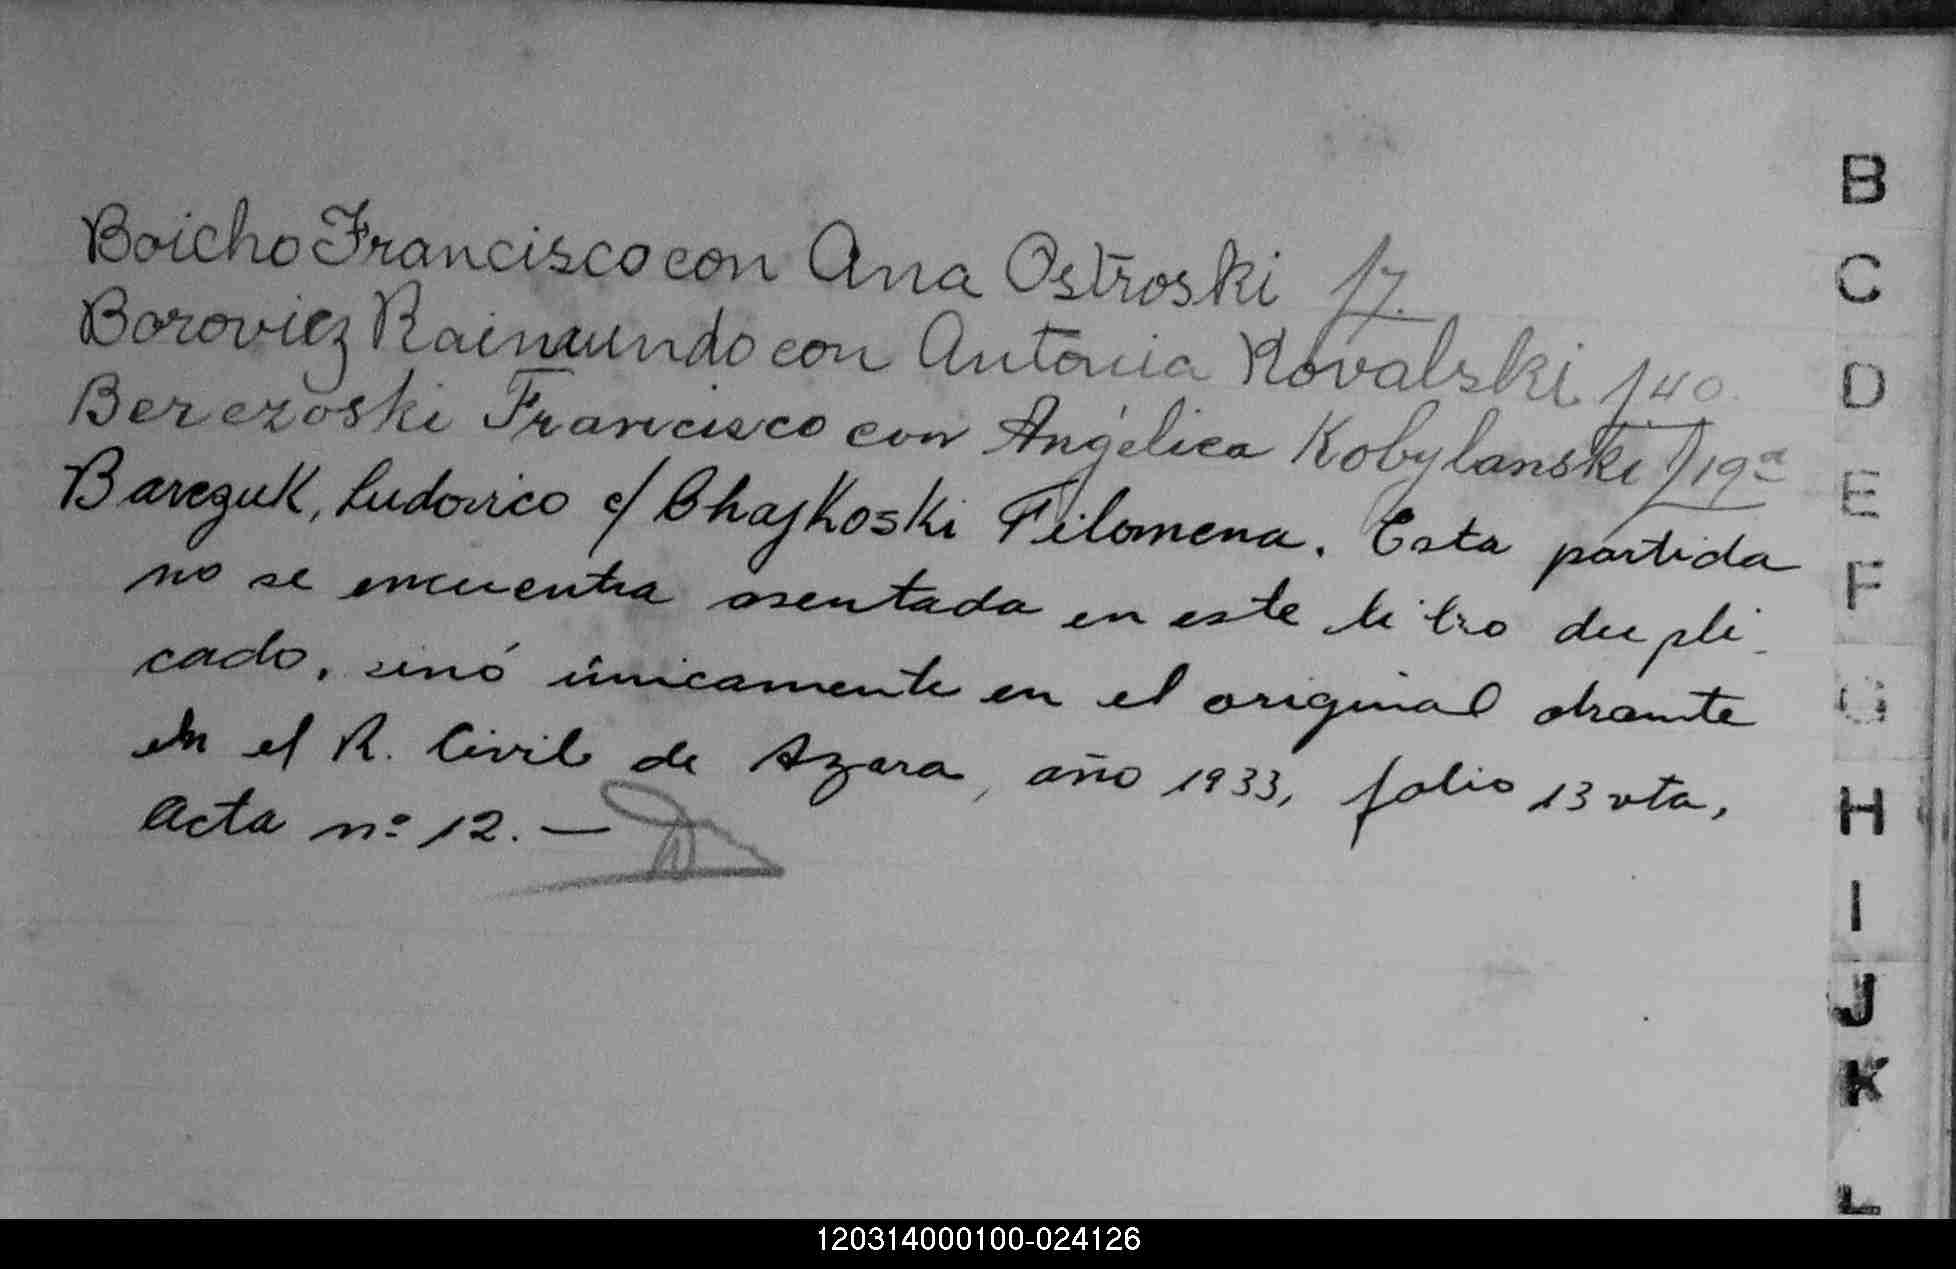 Boicho Francisco con Ana Ostroski f7.
Boroviez Raimundo con Antonia Kovalski f40.
Berezoski Francisco con Angélica Kobylanski f19ª
Barezuk, Ludovico c/ Chajkoski Filomena. Esta partida
no se encuentra asentada en este libro dupli-
cado, sinó únicamente en el original obrante
en el R. Civil de Azara, año 1933, folio 13 vta,
acta nº 12. —
B
C
D
E
F
G
H
I
J
K
L
120314000100-024126